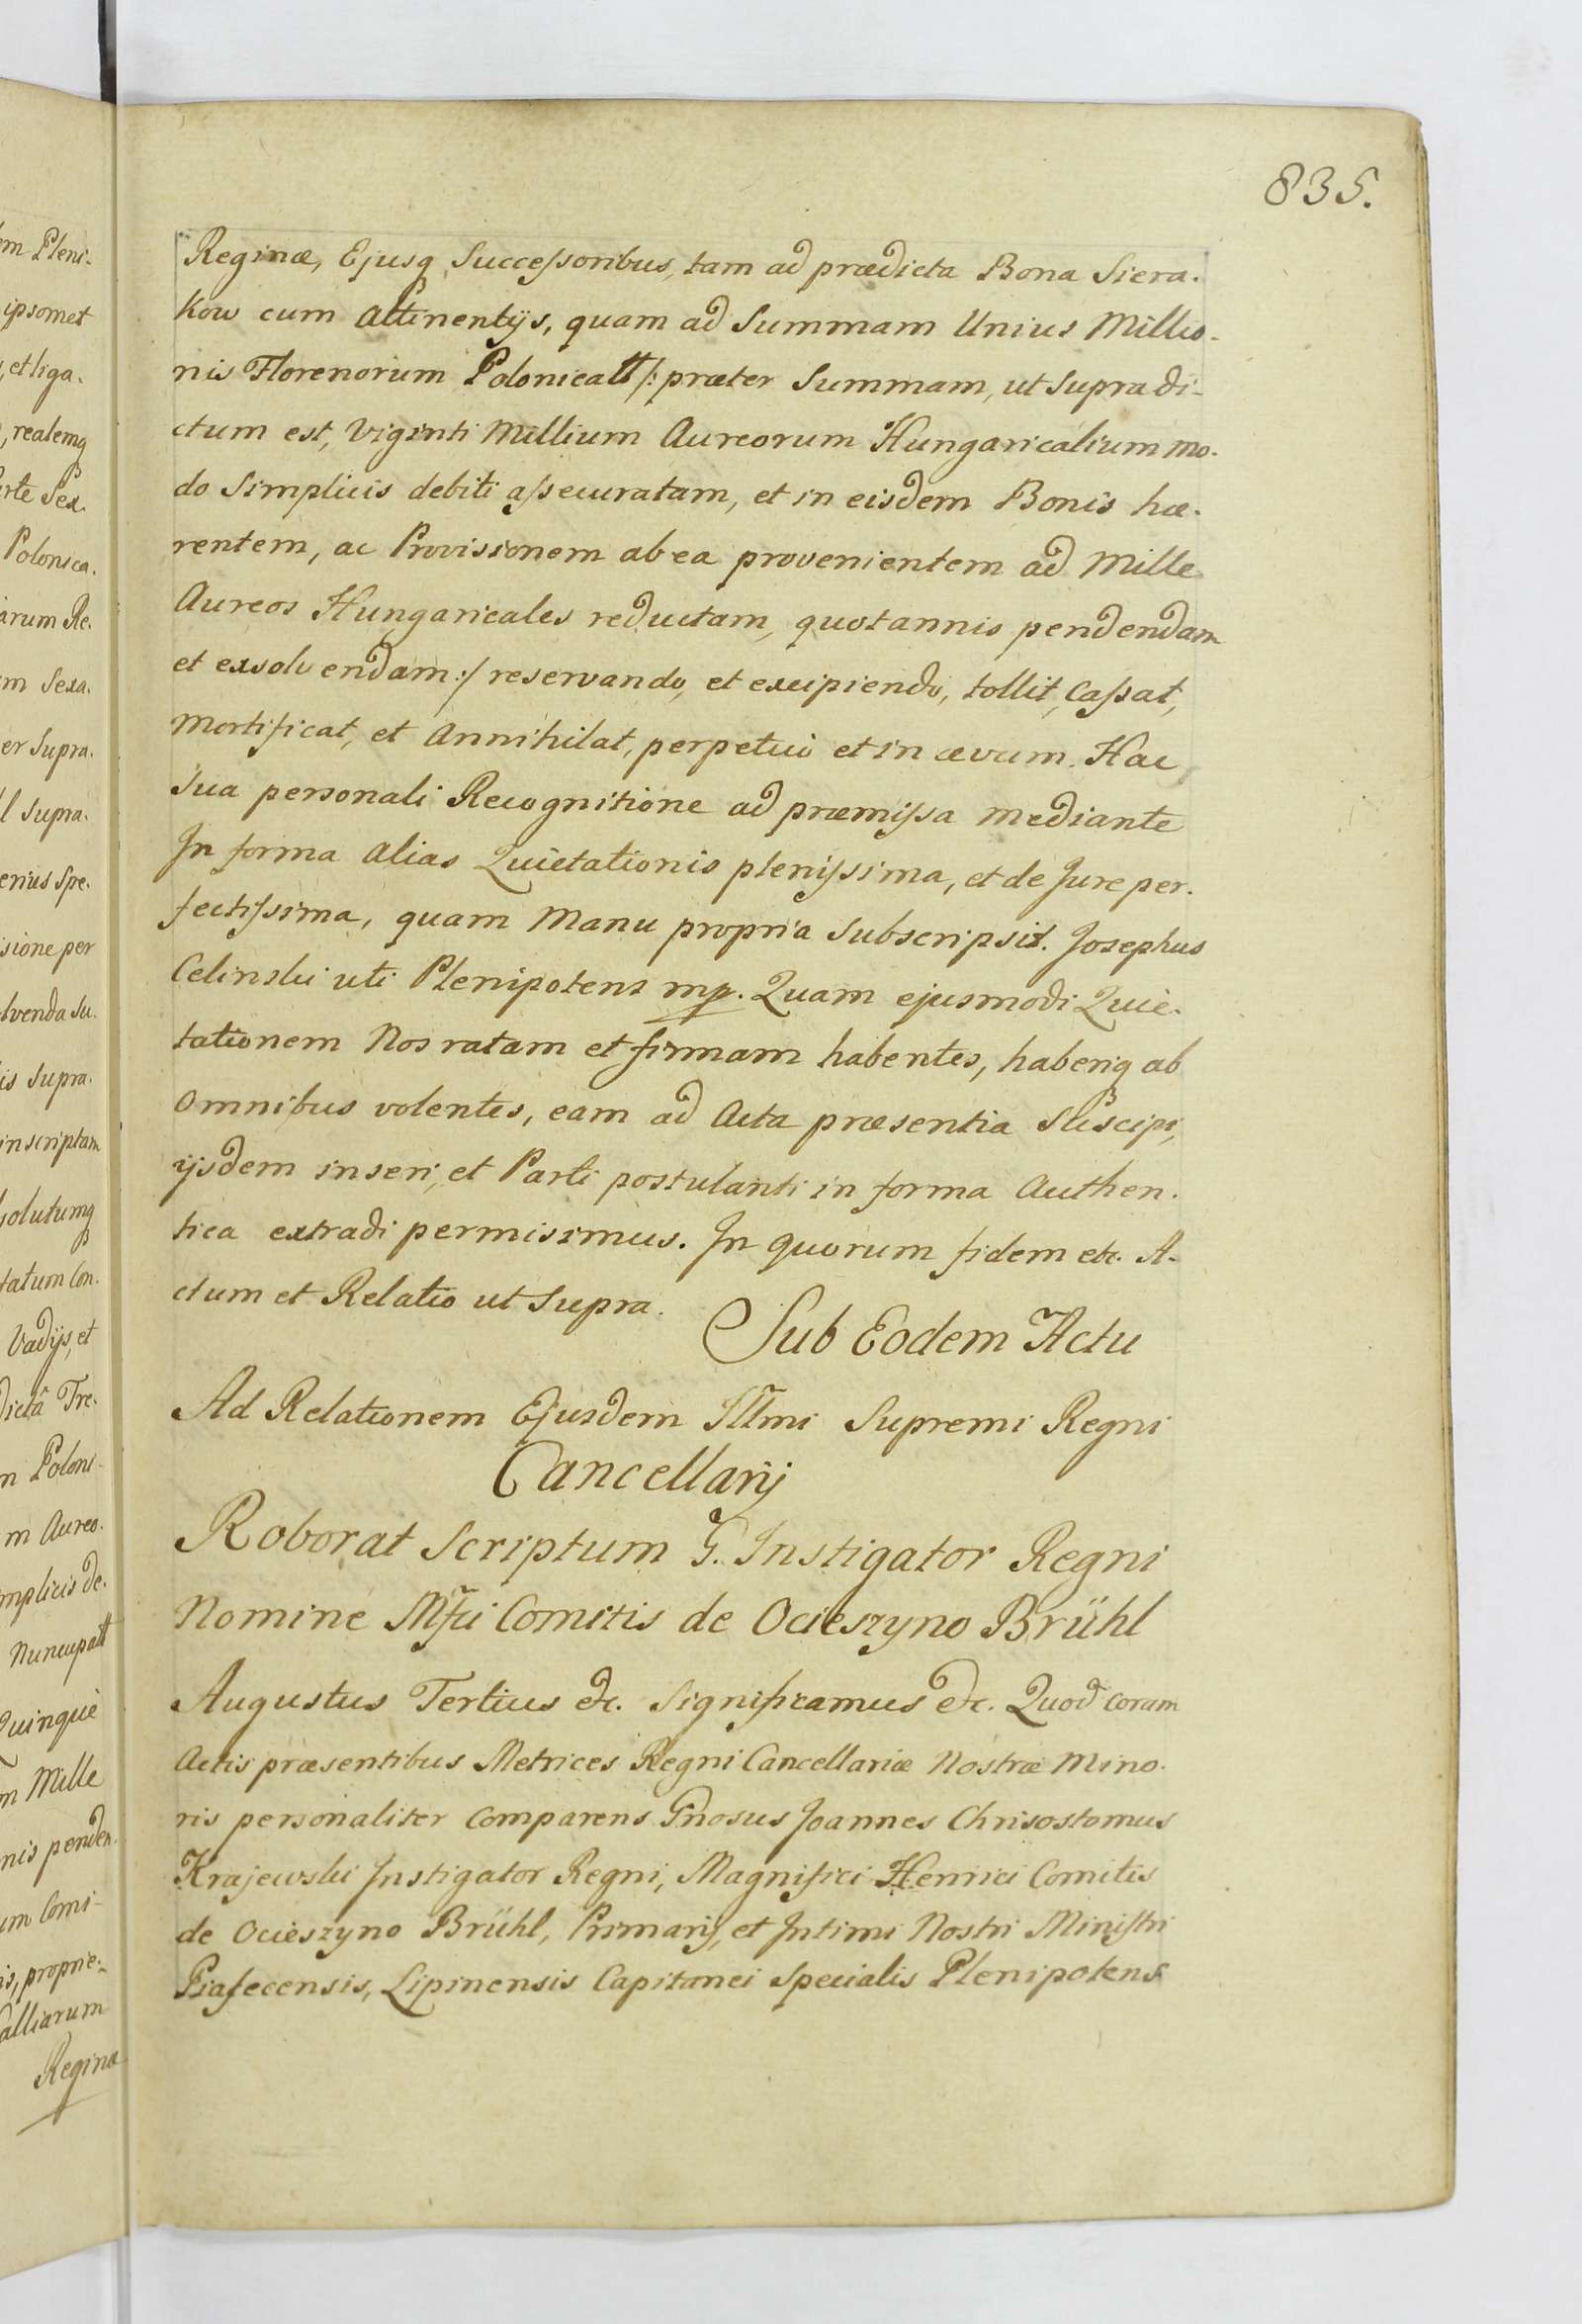 835.
Reginæ, Ejusq Successoribus, tam ad prædicta Bona Siera-
kow cum Attinentijs, quam ad Summam Unius Millio-
nis Florenorum Polonicall /: præter Summam, ut Supra di-
ctum est, Viginti Millium Aureorum Hungaricalium mo-
do Simplicis debiti assecuratam, et in eisdem Bonis hæ-
rentem, ac Provisionem ab ea provenientem ad Mille
Aureos Hungaricales reductam, quotannis pendendam
et exsolvendam :/ reservando, et excipiendo, tollit, Cassat,
Mortificat, et Annihilat, perpetuò et in ævum. Hac
Sua personali Recognitione ad præmissa mediante
In forma alias Quietationis plenissima, et de Jure per-
fectissima, quam Manu propria Subscripsit. Josephus
Celinski uti Plenipotens mp. Quam ejusmodi Quie-
tationem Nos ratam et firmam habentes, haberiq ab
omnibus volentes, eam ad Acta præsentia Suscipi,
ijsdem inseri, et Parti postulanti in forma Authen-
tica extradi permisimus. In quorum fidem etc. A-
ctum et Relatio ut Supra.
Sub Eodem Actu
Ad Relationem Ejusdem Illmi Supremi Regni
Cancellarij
Roborat Scriptum G. Instigator Regni
Nomine Mfci Comitis de Ocieszyno Brühl
Augustus Tertius etc. Significamus etc. Quod coram
Actis præsentibus Metrices Regni Cancellariæ Nostræ Mino-
ris personaliter Comparens Gnosus Joannes Chrisostomus
Krajewski Instigator Regni, Magnifici Henrici Comitis
de Ocieszyno Brühl, Primarij, et Intimi Nostri Ministri
Piasecensis, Lipinensis Capitanei Specialis Plenipotens
em Pleni-
ipsomet
, et liga-
, realemq
Sex-
Polonica-
arum Re-
m Sexa-
er Supra-
l Supra-
erius Spe-
isione per
lvenda Su-
is Supra-
inscriptam
solutumq
tatum Con-
Vadijs, et
dictâ Tre-
n Poloni-
m Aureo-
mplicis de-
Nuncupatt
Quinque
m Mille
nis penden-
um Comi-
is, proprie-
alliarum
Reginæ